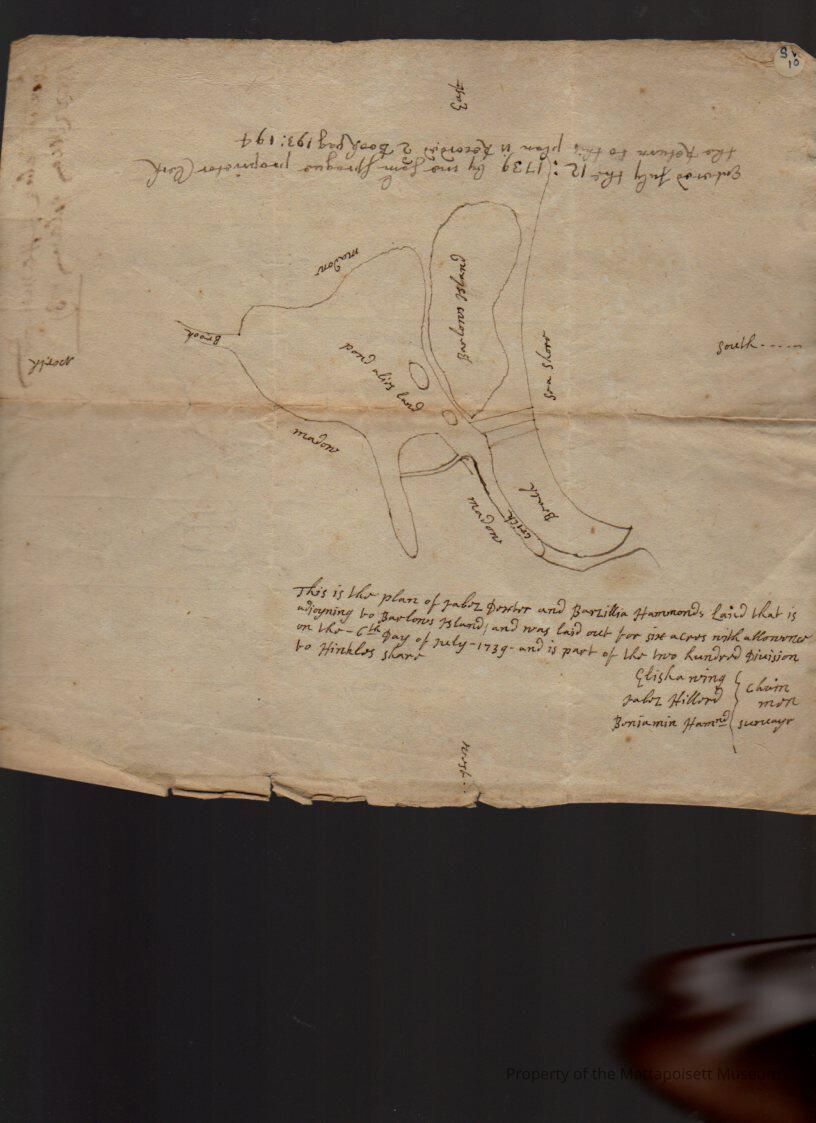 SV
10
East
Entered July the 12: 1739 by me Sam Sprague proprietor Clerk
the Return to this plan is Recorded 2 Book pag 193: 194
madow
Barlows Island
Brook
good alies land
sea shore
South.....
North
madow
madow
crick
Beach
This is the plan of Jabez Dexter and Barzillia Hammonds Land that is
adjoyning to Barlows Island, and was laid out for six acres with allowance
on the - 6th Day of July - 1739 - and is part of the two hundred Division
to Hinkles Share
Elisha wing
Jabez Hillerd
Chain
men
Benjamin Hamnd survayr
West..
Property of the Mattapoisett Museum